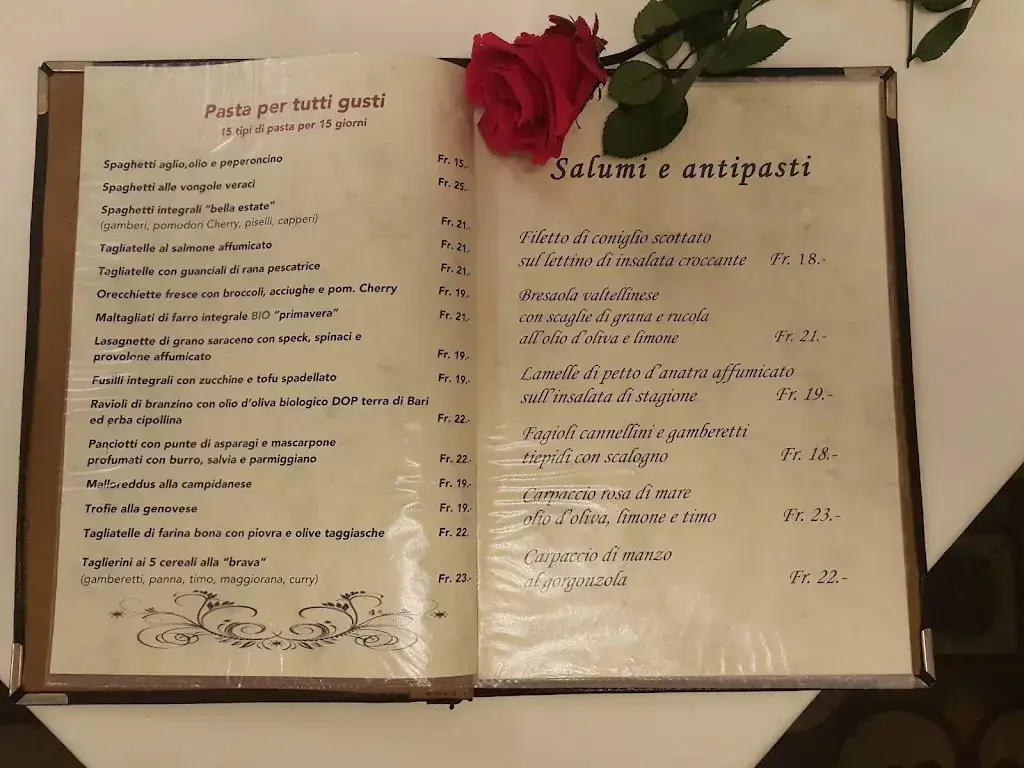 Pasta per tutti gusti
15 tipi di pasta per 15 giorni
Spaghetti aglio,olio e peperoncino Fr. 15.-
Spaghetti alle vongole veraci Fr. 25.-
Spaghetti integrali "bella estate"
(gamberi, pomodori Cherry, piselli, capperi) Fr. 21.-
Tagliatelle al salmone affumicato Fr. 21.-
Tagliatelle con guanciali di rana pescatrice Fr. 21.-
Orecchiette fresce con broccoli, acciughe e pom. Cherry Fr. 19.-
Maltagliati di farro integrale BIO "primavera" Fr. 21.-
Lasagnette di grano saraceno con speck, spinaci e
provolone affumicato Fr. 19.-
Fusilli integrali con zucchine e tofu spadellato Fr. 19.-
Ravioli di branzino con olio d'oliva biologico DOP terra di Bari
ed erba cipollina Fr. 22.-
Panciotti con punte di asparagi e mascarpone
profumati con burro, salvia e parmiggiano Fr. 22.-
Malloreddus alla campidanese Fr. 19.-
Trofie alla genovese Fr. 19.-
Tagliatelle di farina bona con piovra e olive taggiasche Fr. 22.
Taglierini ai 5 cereali alla "brava"
(gamberetti, panna, timo, maggiorana, curry) Fr. 23.-
Salumi e antipasti
Filetto di coniglio scottato
sul lettino di insalata croccante Fr. 18.-
Bresaola valtellinese
con scaglie di grana e rucola
all'olio d'oliva e limone Fr. 21.-
Lamelle di petto d'anatra affumicato
sull'insalata di stagione Fr. 19.-
Fagioli cannellini e gamberetti
tiepidi con scalogno Fr. 18.-
Carpaccio rosa di mare
olio d'oliva, limone e timo Fr. 23.-
Carpaccio di manzo
al gorgonzola Fr. 22.-